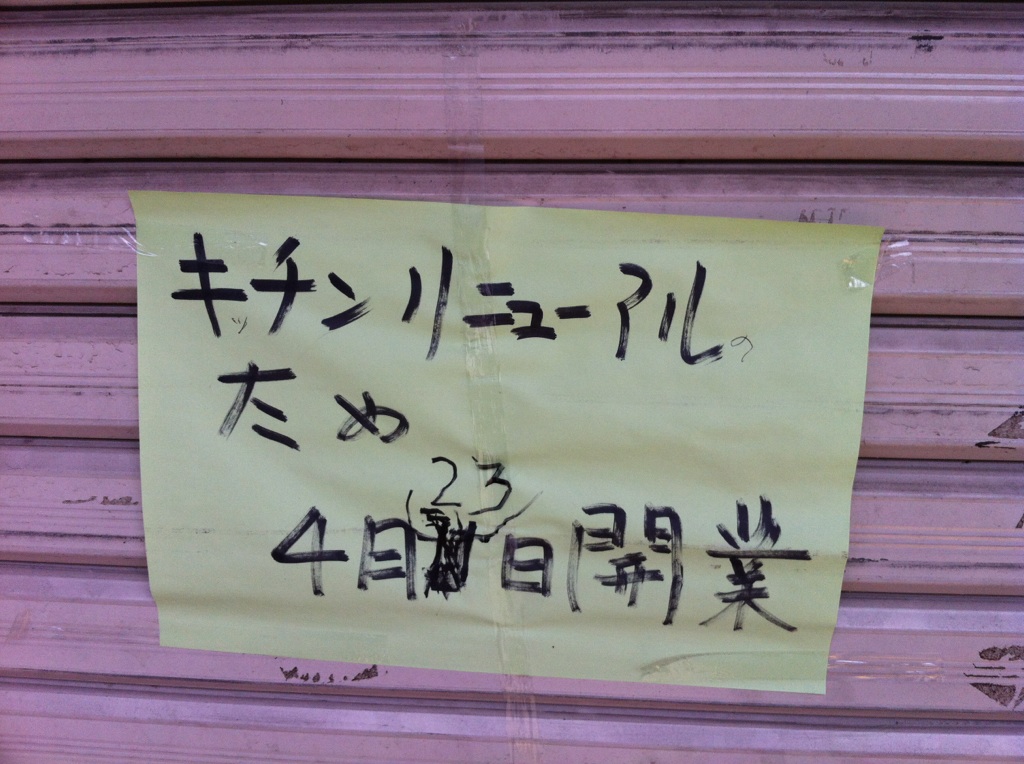 キッチンリニューアルの
ため
4月23日開業